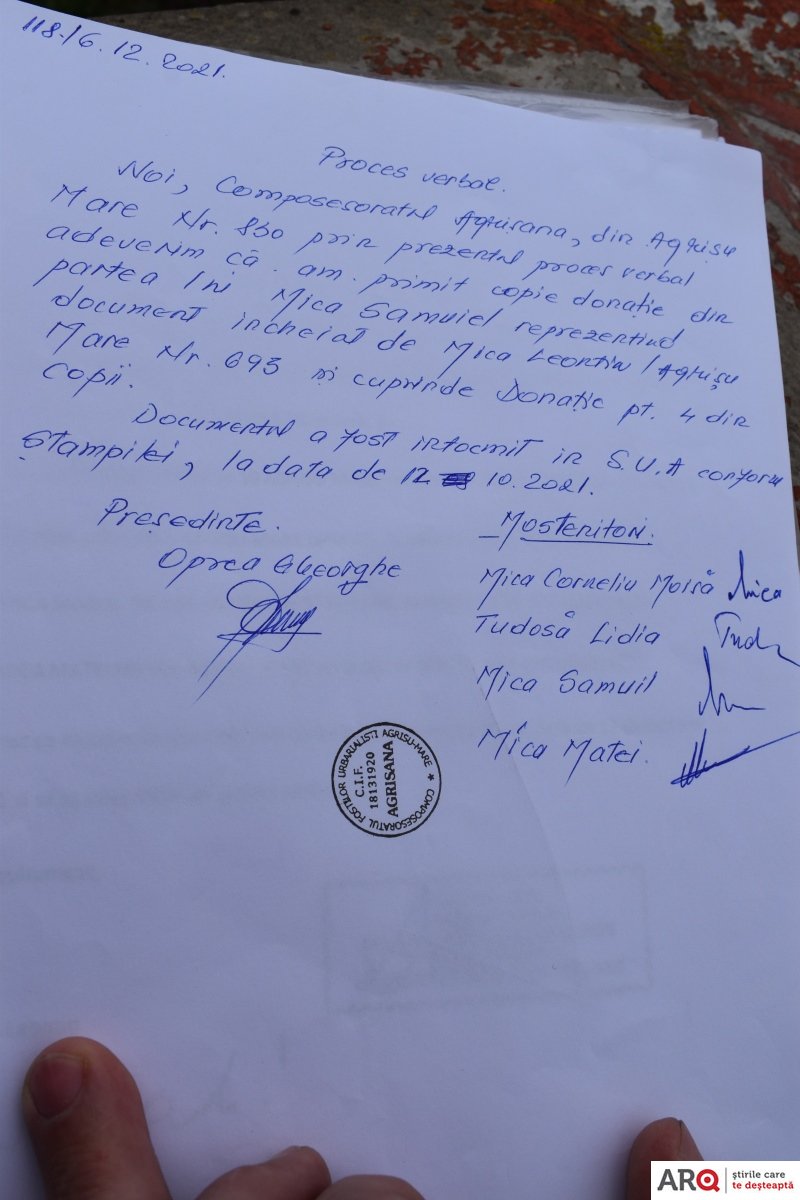 118./6.12.2021.
Proces verbal.
Noi, Composesoratul Agrisana, din Agrișu
Mare Nr. 830 prin prezentul proces verbal
adeverim că am primit copie donație din
partea lui Mica Samuiel reprezentind
document incheiat de Mica Leontin / Agrișu
Mare Nr. 693 și cuprinde Donație pt. 4 din
copii.
Documentul a fost intocmit in S.U.A conform
Ștampilei, la data de 12 10.2021.
Președinte.
Oprea Gheorghe
Mostenitori.
Mica Corneliu Moisă Mica
Tudosă Lidia Tud
Mica Samuil
Mica Matei.
COMPOSESORATUL FOȘTILOR URBARIALIȘTI AGRISU-MARE *
C.I.F.
18131920
AGRISANA
ARQ știrile care
te deșteaptă